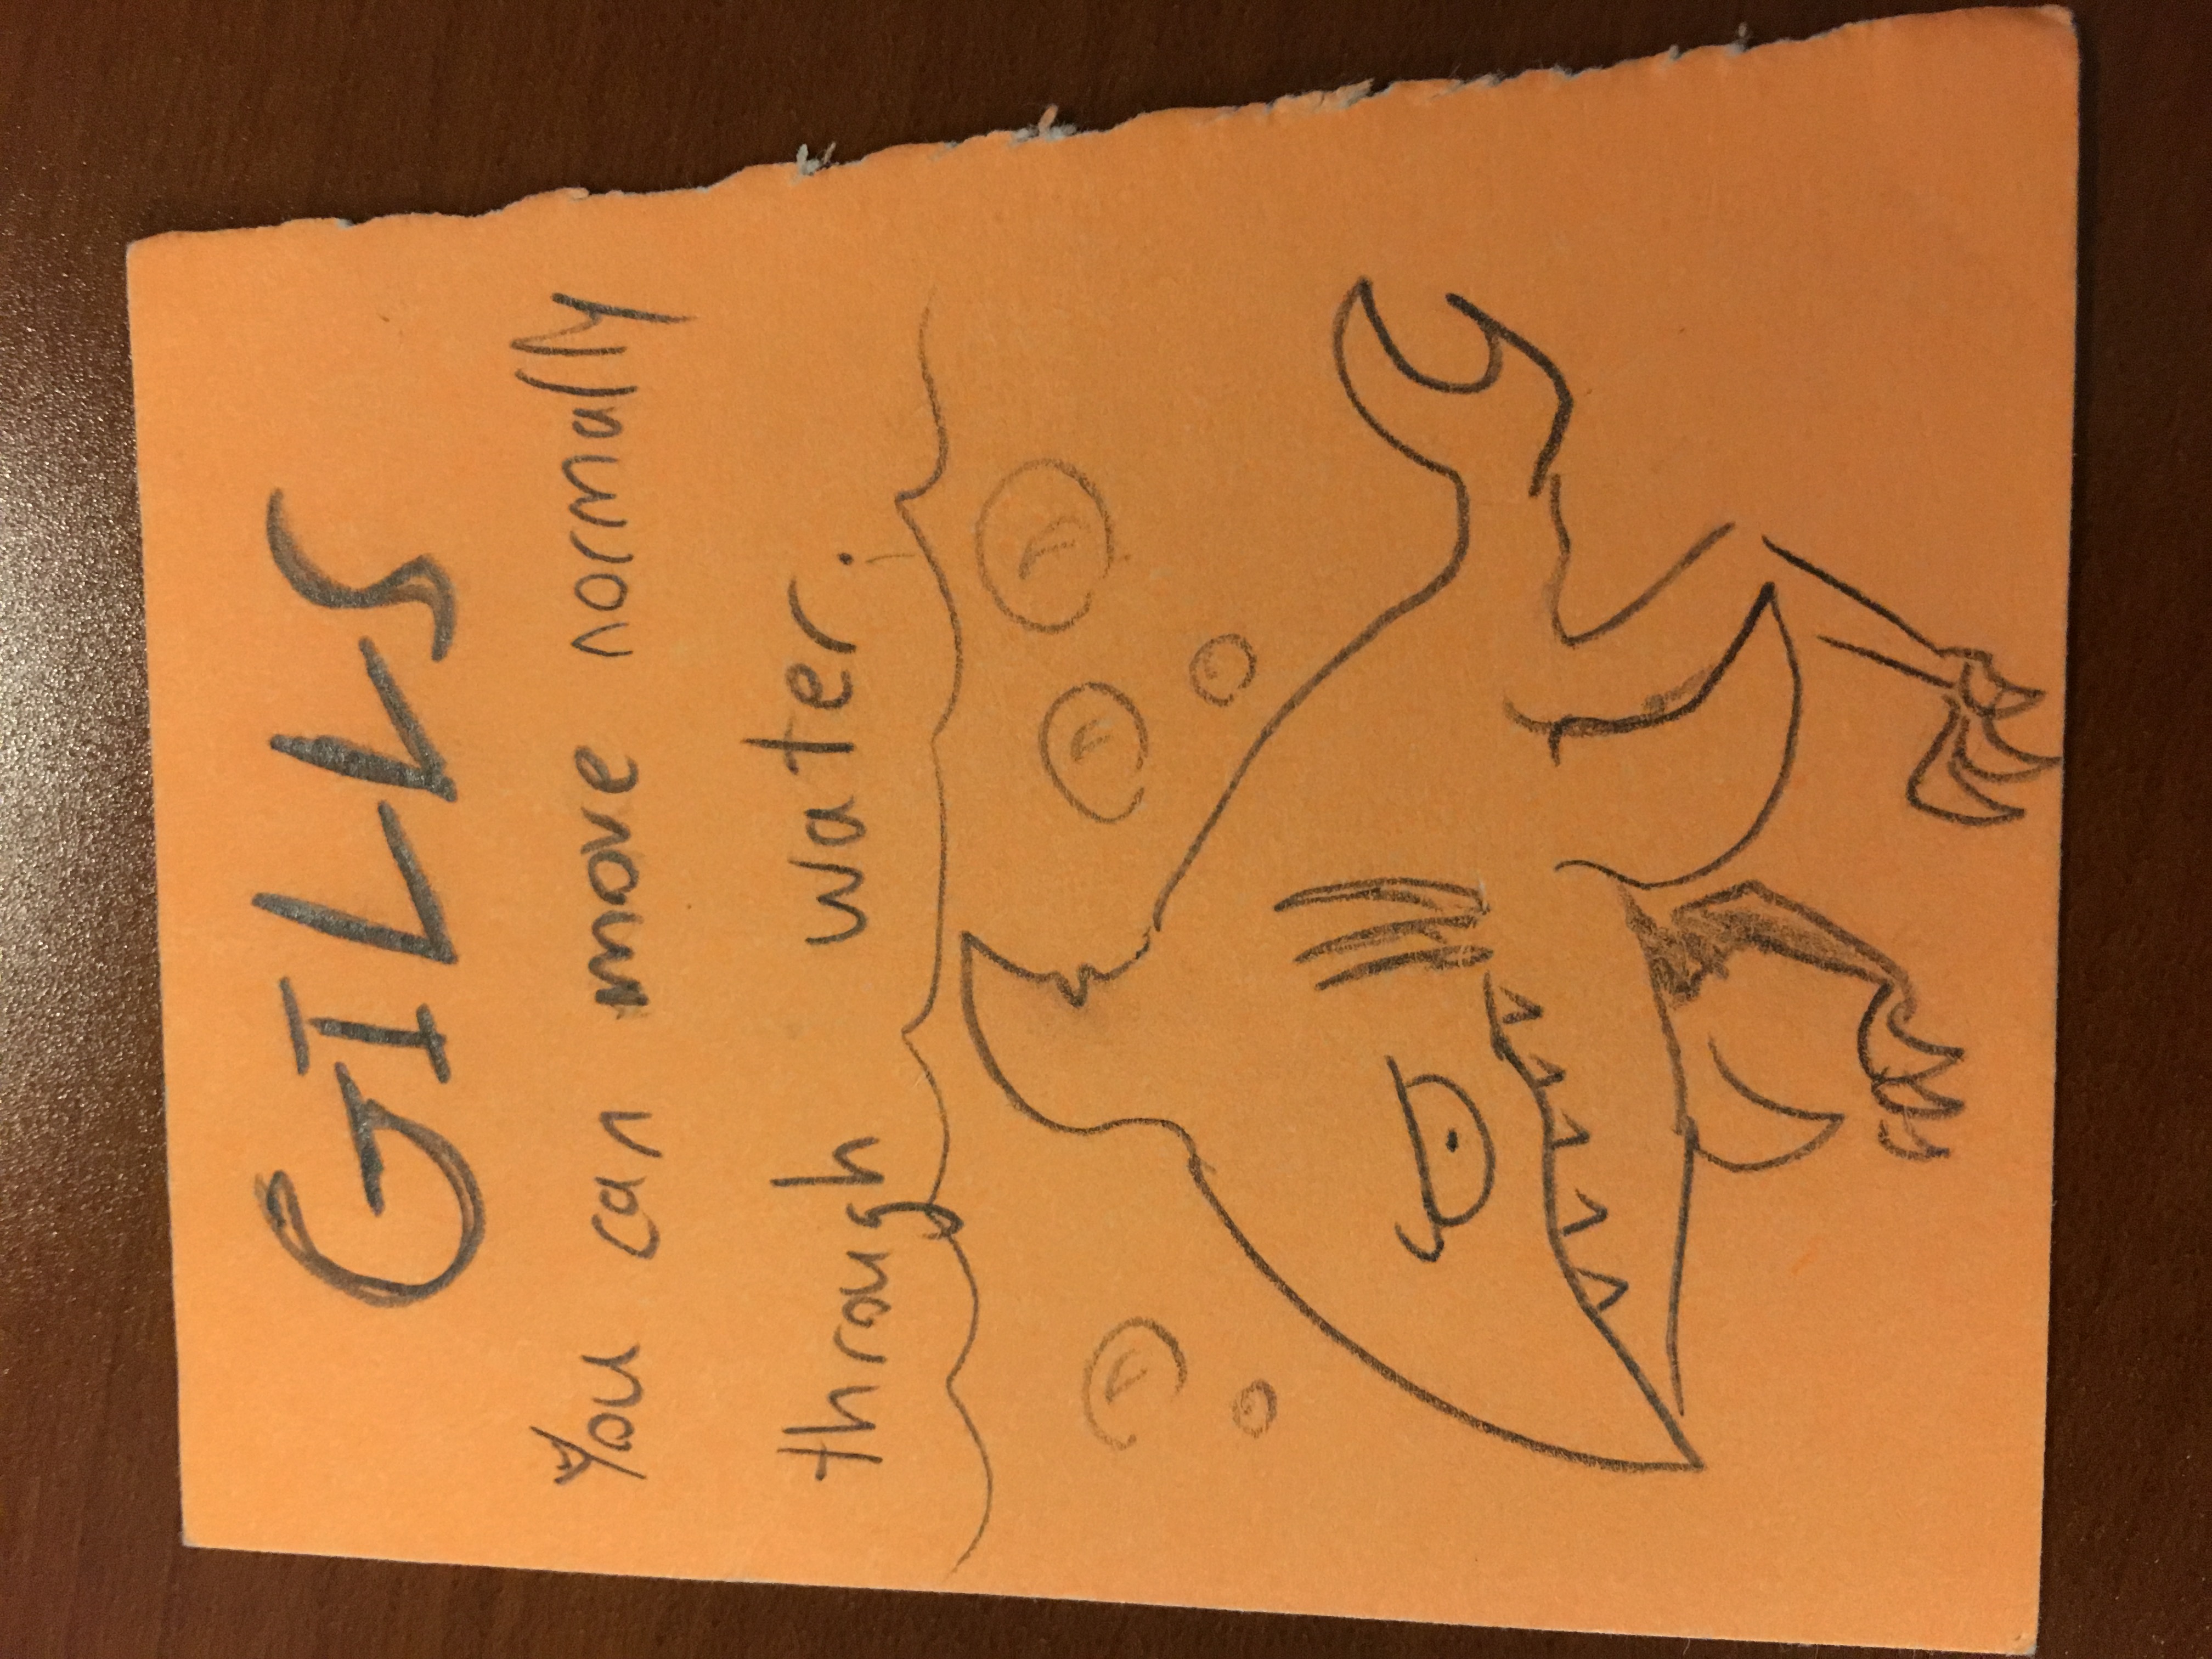 GILLS
You can move normally
through water.